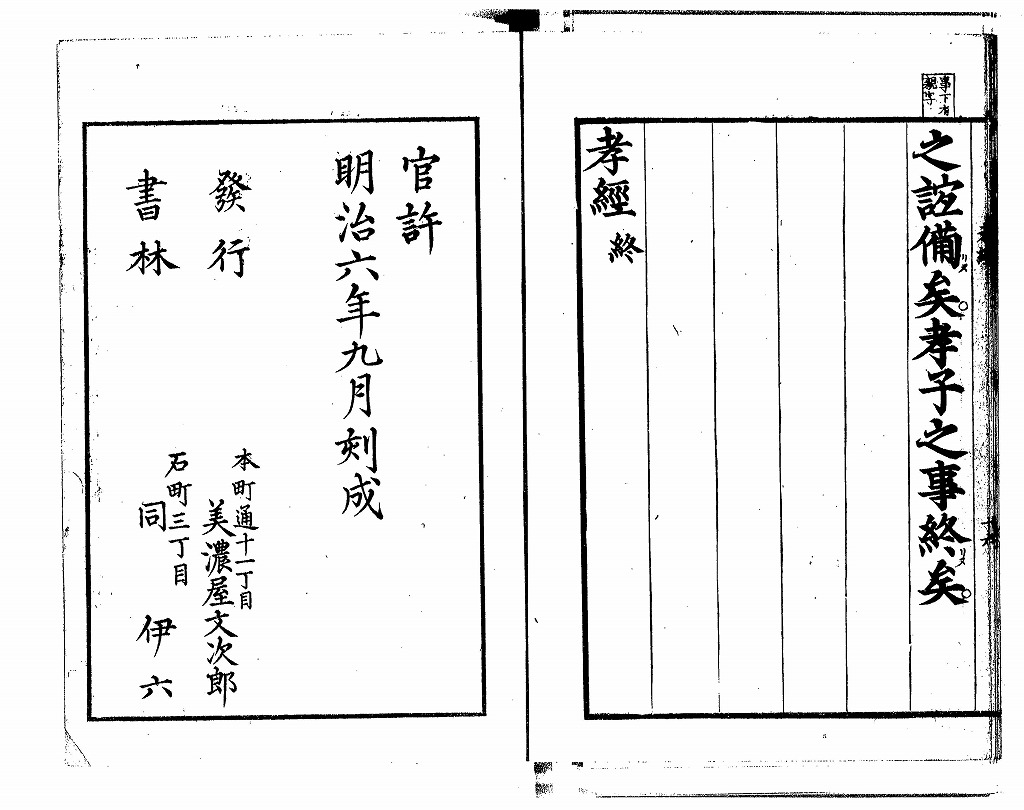 事下有
親字
之誼備リヌ矣。孝子之事終リヌ矣。
孝經終
官許
明治六年九月刻成
發行
書林
本町通十一丁目
美濃屋文次郎
石町三丁目
同 伊六